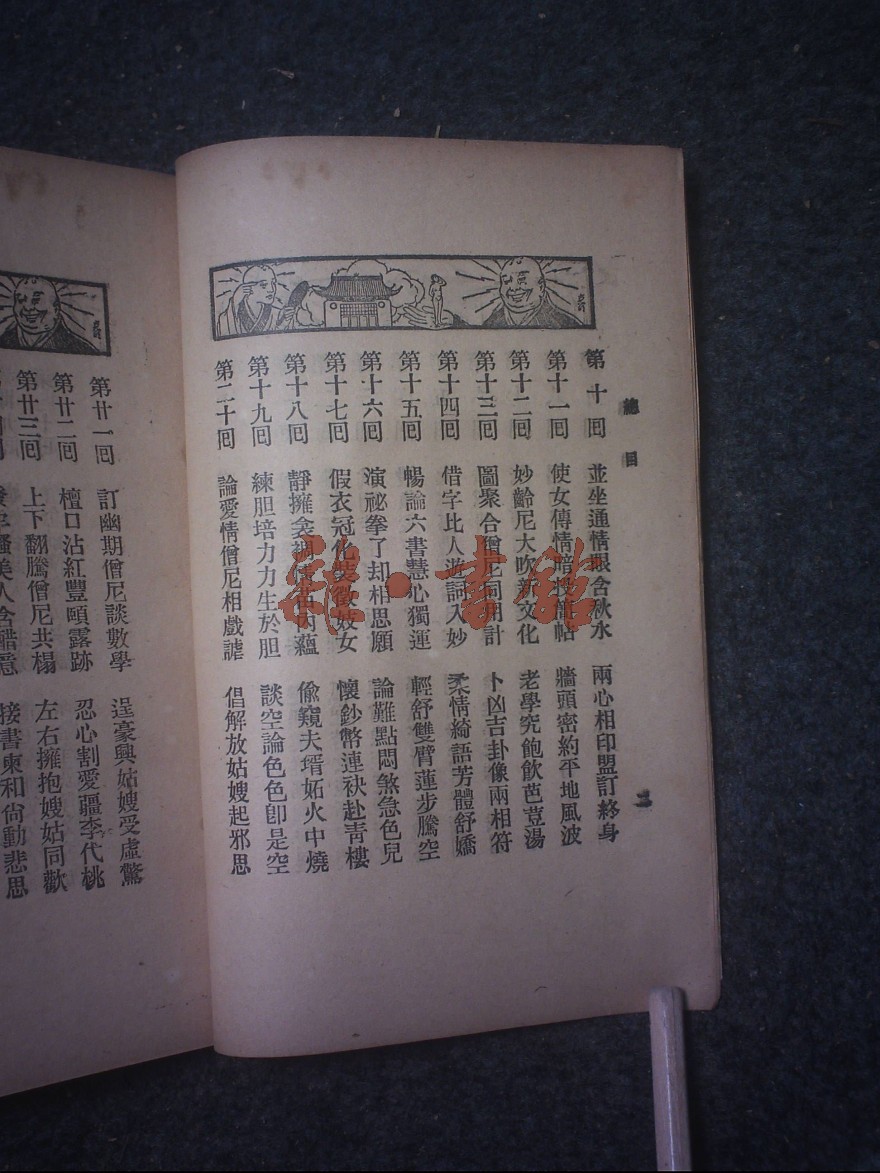 總目
二
第十回 並坐通情眼含秋水 兩心相印盟訂終身
第十一回 使女傳情暗投簡帖 牆頭密約平地風波
第十二回 妙齡尼大吹新文化 老學究飽飲芭荳湯
第十三回 圖聚合僧尼同用計 卜凶吉卦像兩相符
第十四回 借字比人遊詞入妙 柔情綺語芳體舒嬌
第十五回 暢論六書慧心獨運 輕舒雙臂蓮步騰空
第十六回 演祕拳了却相思願 論難點悶煞急色兒
第十七回 假衣冠化裝徵妓女 懷鈔幣連袂赴靑樓
第十八回 靜擁衾裯 內蘊 偸窺夫壻妬火中燒
第十九回 練胆培力力生於胆 談空論色色卽是空
第二十回 論愛情僧尼相戲謔 倡解放姑嫂起邪思
第廿一回 訂幽期僧尼談數學 逞豪興姑嫂受虛驚
第廿二回 檀口沾紅豐頤露跡 忍心割愛疆李代桃
第廿三回 上下翻騰僧尼共榻 左右擁抱嫂姑同歡
美人含醋意 接書柬和尙動悲思
龍·書館